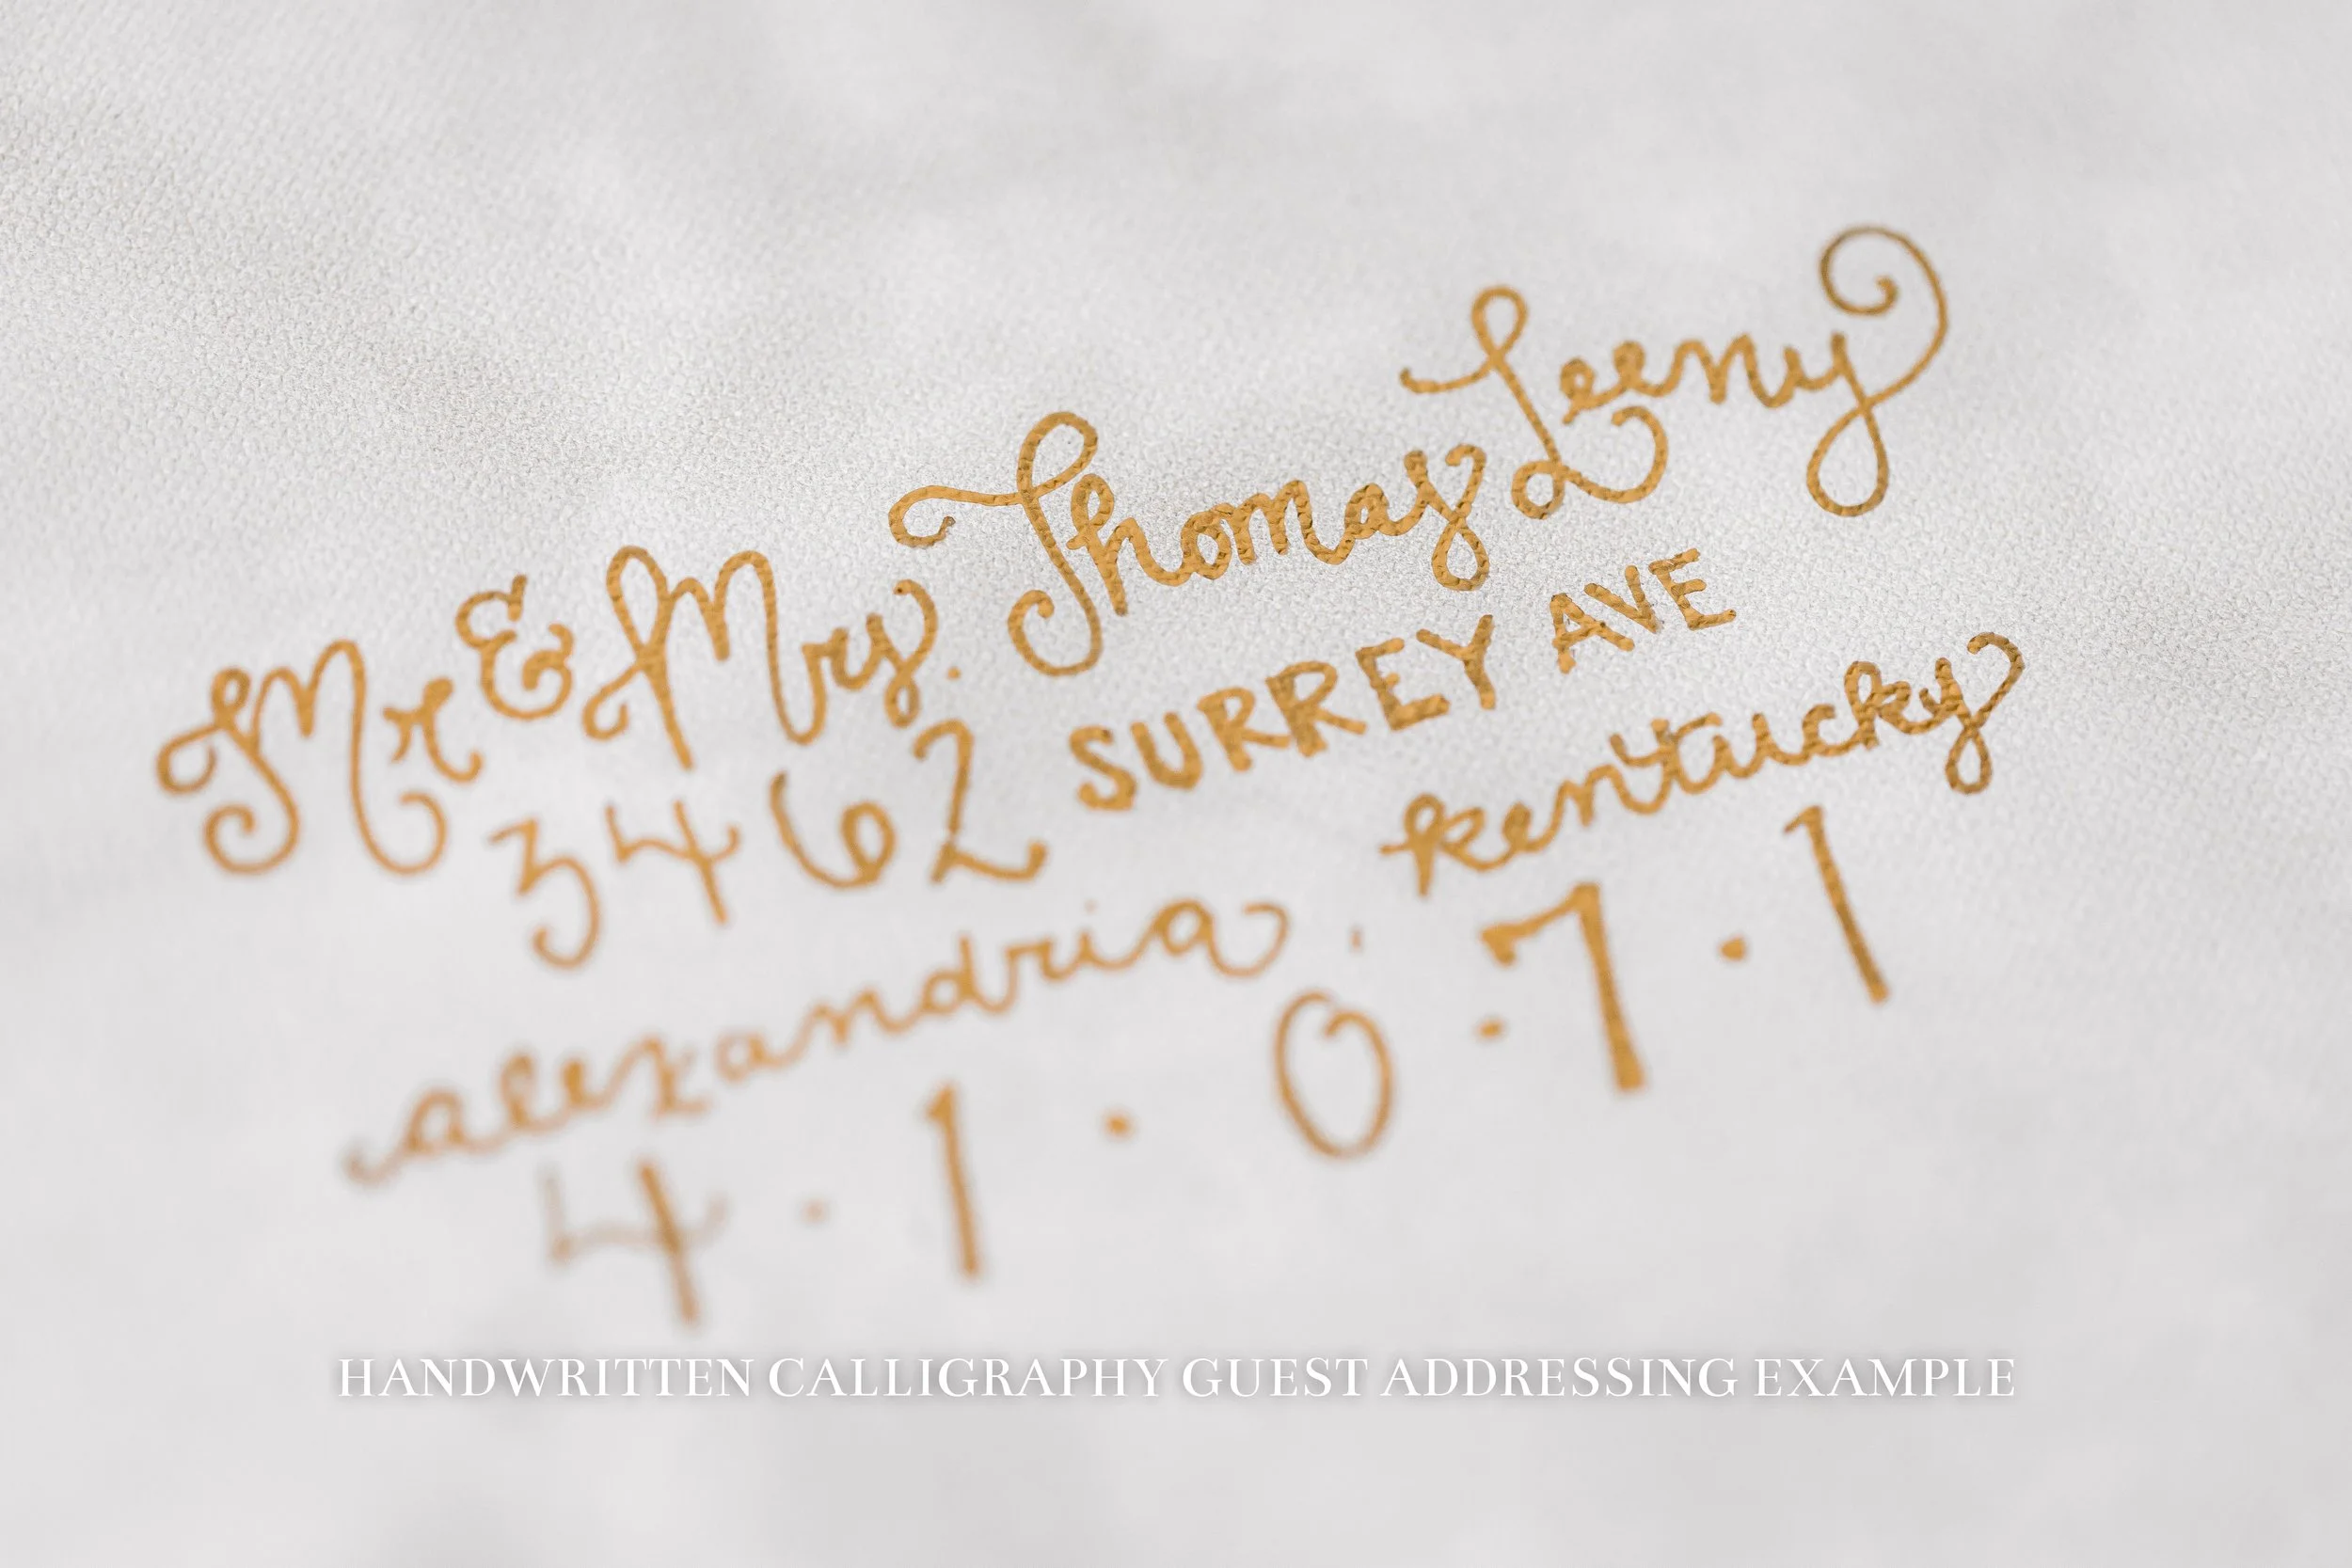 Mr & Mrs. Thomas Leeny
3462 SURREY AVE
alexandria. kentucky
4 · 1 · 0 · 7 · 1
HANDWRITTEN CALLIGRAPHY GUEST ADDRESSING EXAMPLE